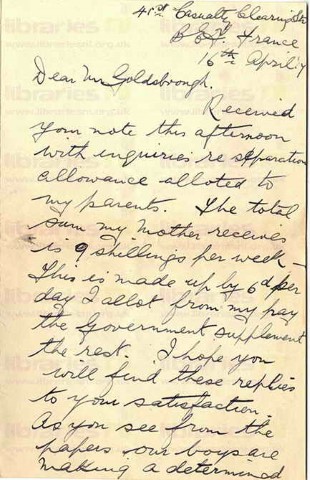 41st Casualty Clearing Stn
B.E.F. France
16th April 17
Dear Mr Goldsbrough,
Received
your note this afternoon
with inquiries re separation
allowance alloted to
my parents. The total
sum my Mother receives
is 9 shillings per week –
This is made up by 6d per
day I allot from my pay
the Government supplement
the rest. I hope you
will find these replies
to your satisfaction.
As you see from the
papers our boys are
making a determined